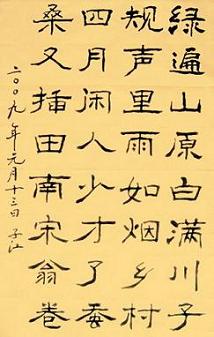 绿遍山原白满川子
规声里雨如烟乡村
四月闲人少才了蚕
桑又插田南宋翁卷
二〇〇九年元月十三日子江